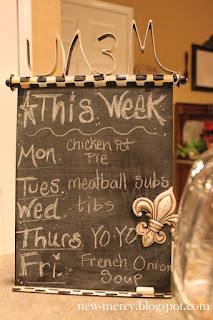 This Week
Mon. Chicken Pot
Pie
Tues. meatball subs
Wed. tibs
Thurs. Yo-Yo
Fri. French Onion
Soup
new-mercy.blogspot.com